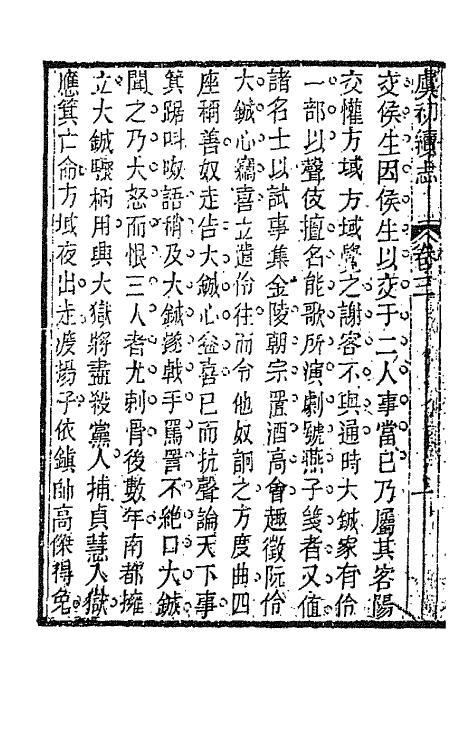 虞初續志 卷三
交侯生因侯生以交于二人事當已乃屬其客陽
交懽方域方域覺之謝客不與通時大鋮家有伶
一部以聲伎擅名能歌所演劇號燕子箋者又值
諸名士以試事集金陵朝宗置酒高會趣徵阮伶
大鋮心竊喜立遣伶往而令他奴詗之方度曲四
座稱善奴走告大鋮心益喜已而抗聲論天下事
箕踞呌呶語稍及大鋮遂戟手罵詈不絕口大鋮
聞之乃大怒而恨三人者尤刺骨後數年南都擁
立大鋮驟柄用興大獄將盡殺黨人捕貞慧入獄
應箕亡命方域夜出走渡揚子依鎮帥高傑得免